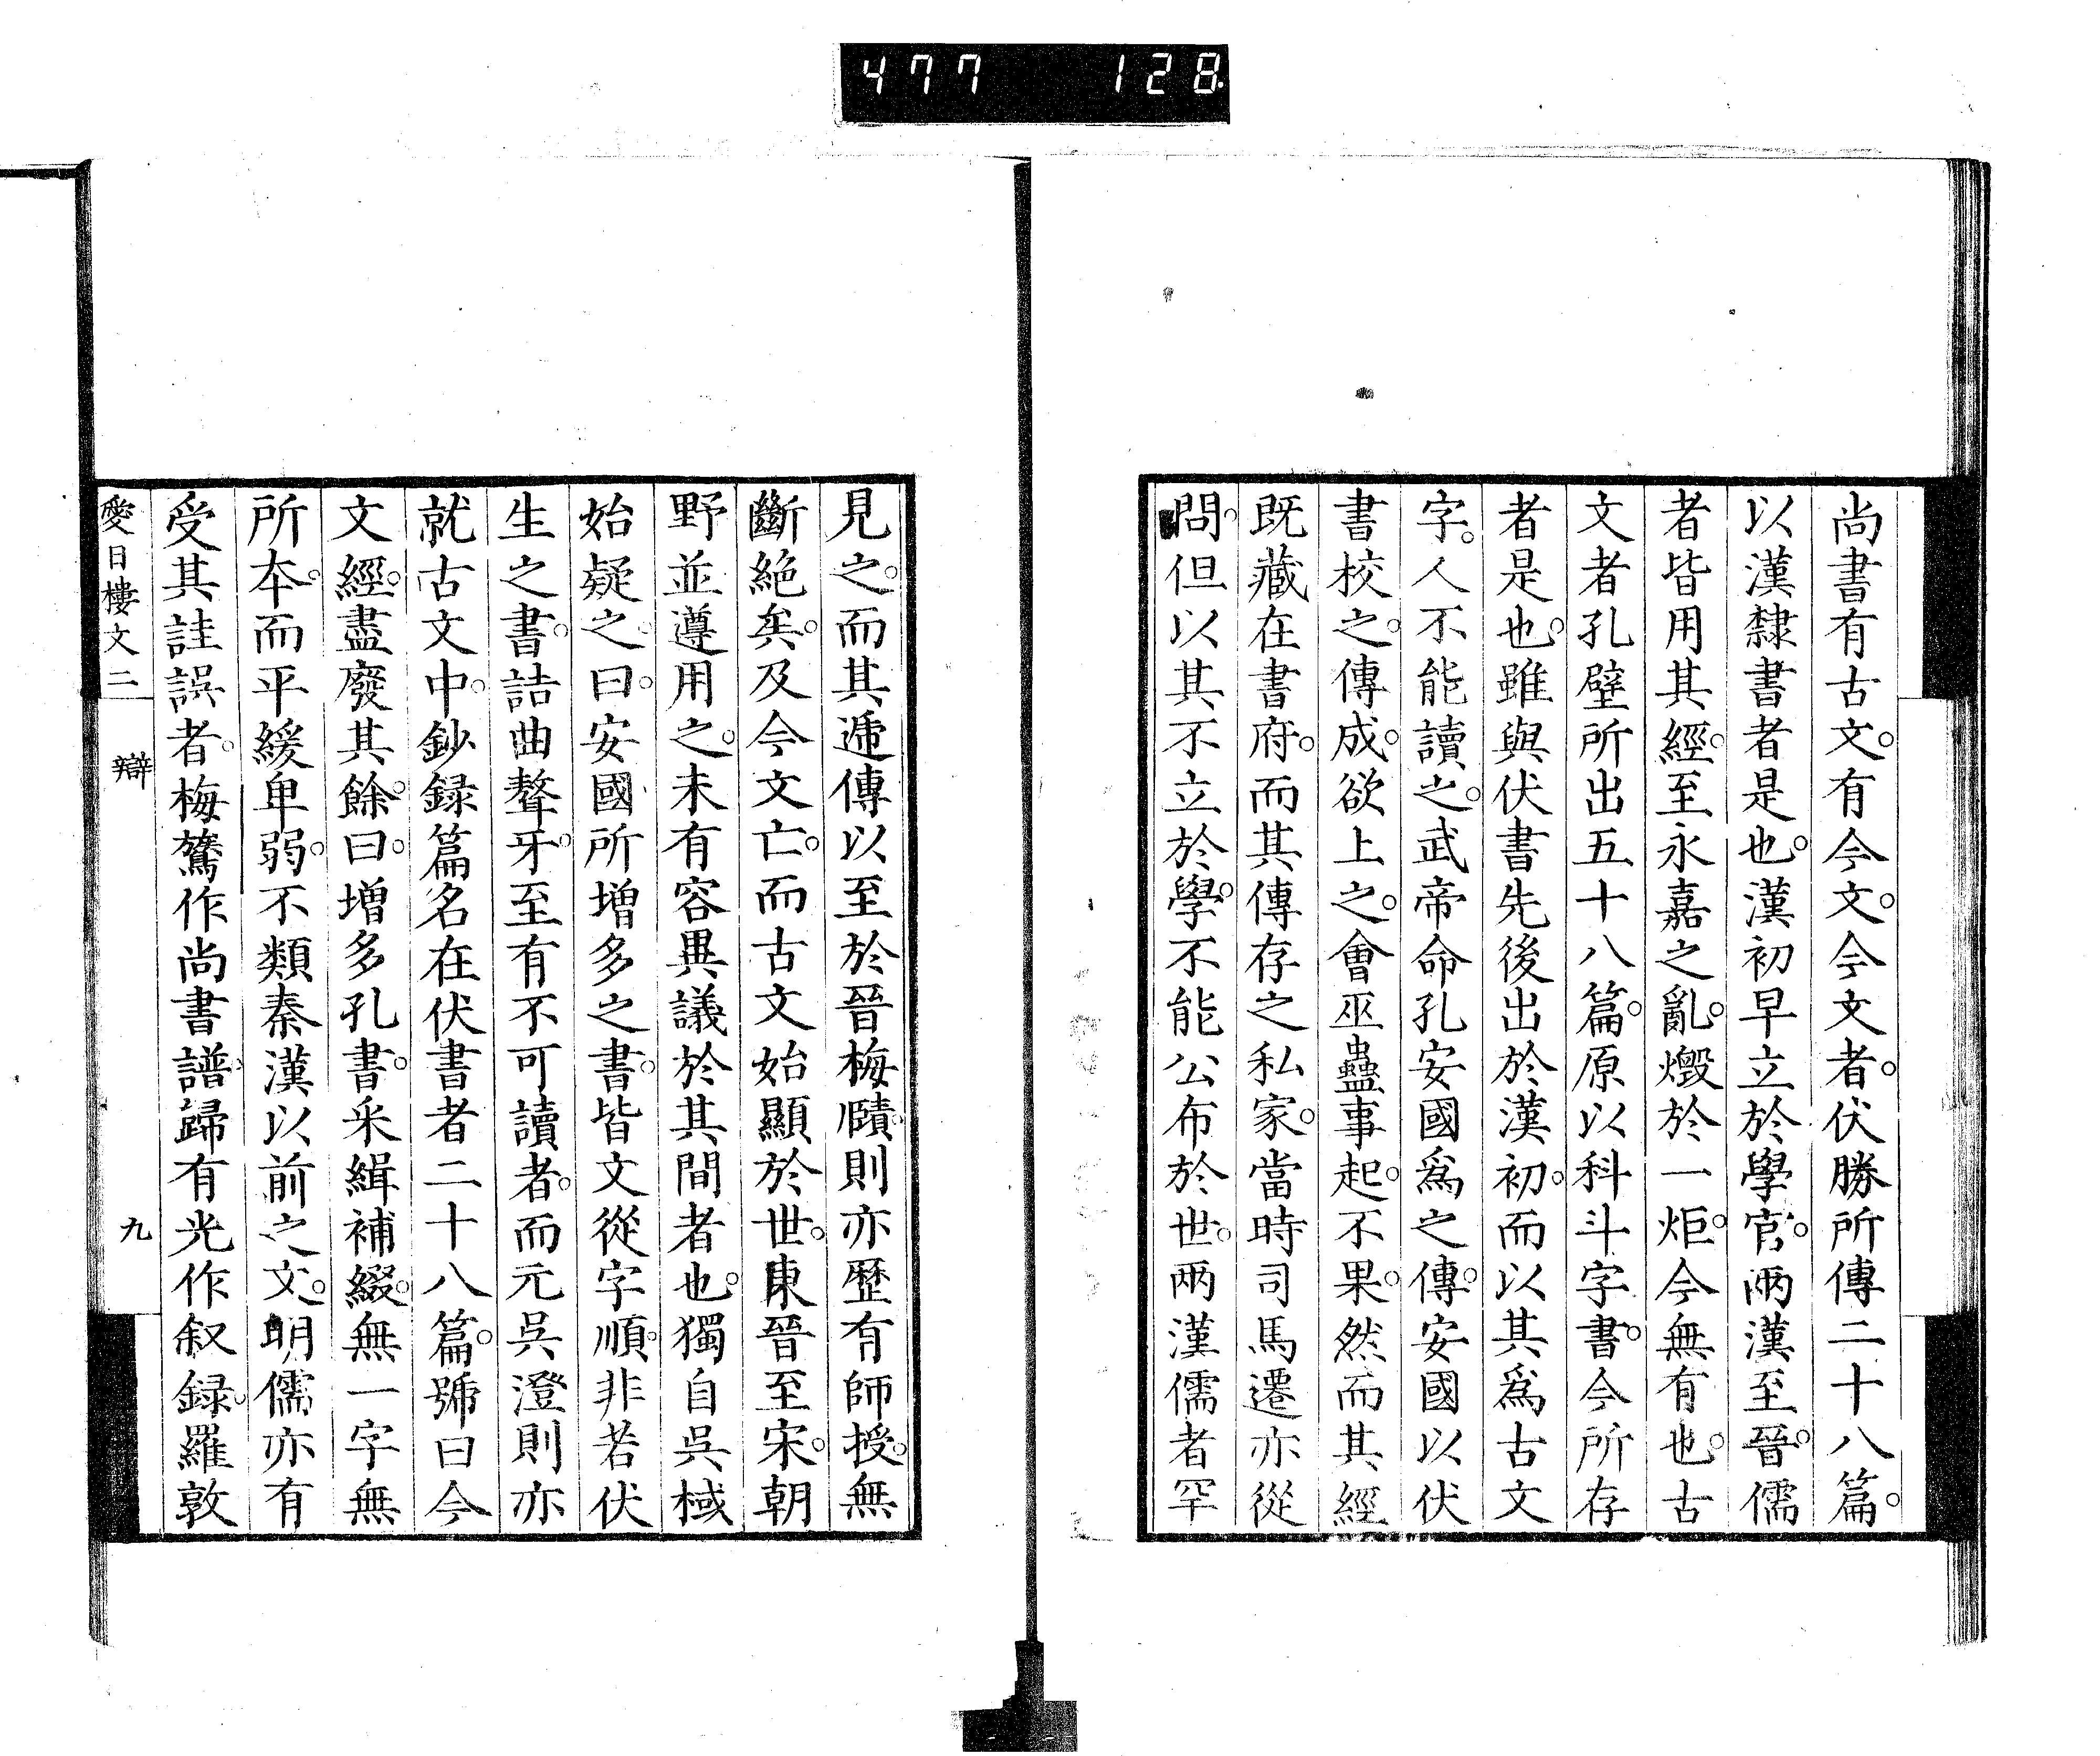 477 128
尚書有古文。有今文。今文者。伏勝所傳二十八篇。
以漢隸書者是也。漢初早立於學官。兩漢至晉。儒
者皆用其經。至永嘉之亂。燬於一炬。今無有也。古
文者孔壁所出五十八篇。原以科斗字書。今所存
者是也。雖與伏書先後出於漢初。而以其爲古文
字。人不能讀之。武帝命孔安國爲之傳。安國以伏
書校之。傳成。欲上之。會巫蠱事起。不果。然而其經
既藏在書府。而其傳存之私家。當時司馬遷亦從
問。但以其不立於學。不能公布於世。兩漢儒者罕
見之。而其遞傳以至於晉梅賾。則亦歷有師授。無
斷絕矣。及今文亡。而古文始顯於世。東晉至宋。朝
野並遵用之。未有容異議於其間者也。獨自吳棫
始疑之。曰。安國所增多之書。皆文從字順。非若伏
生之書。詰曲聱牙。至有不可讀者。而元吳澄則亦
就古文中。鈔録篇名在伏書者二十八篇。號曰今
文經。盡廢其餘。曰。增多孔書。采緝補綴。無一字無
所本。而平緩卑弱。不類秦漢以前之文。明儒亦有
受其註誤者。梅鷟作尚書譜。歸有光作叙録。羅敦
愛日樓文二 辯 九